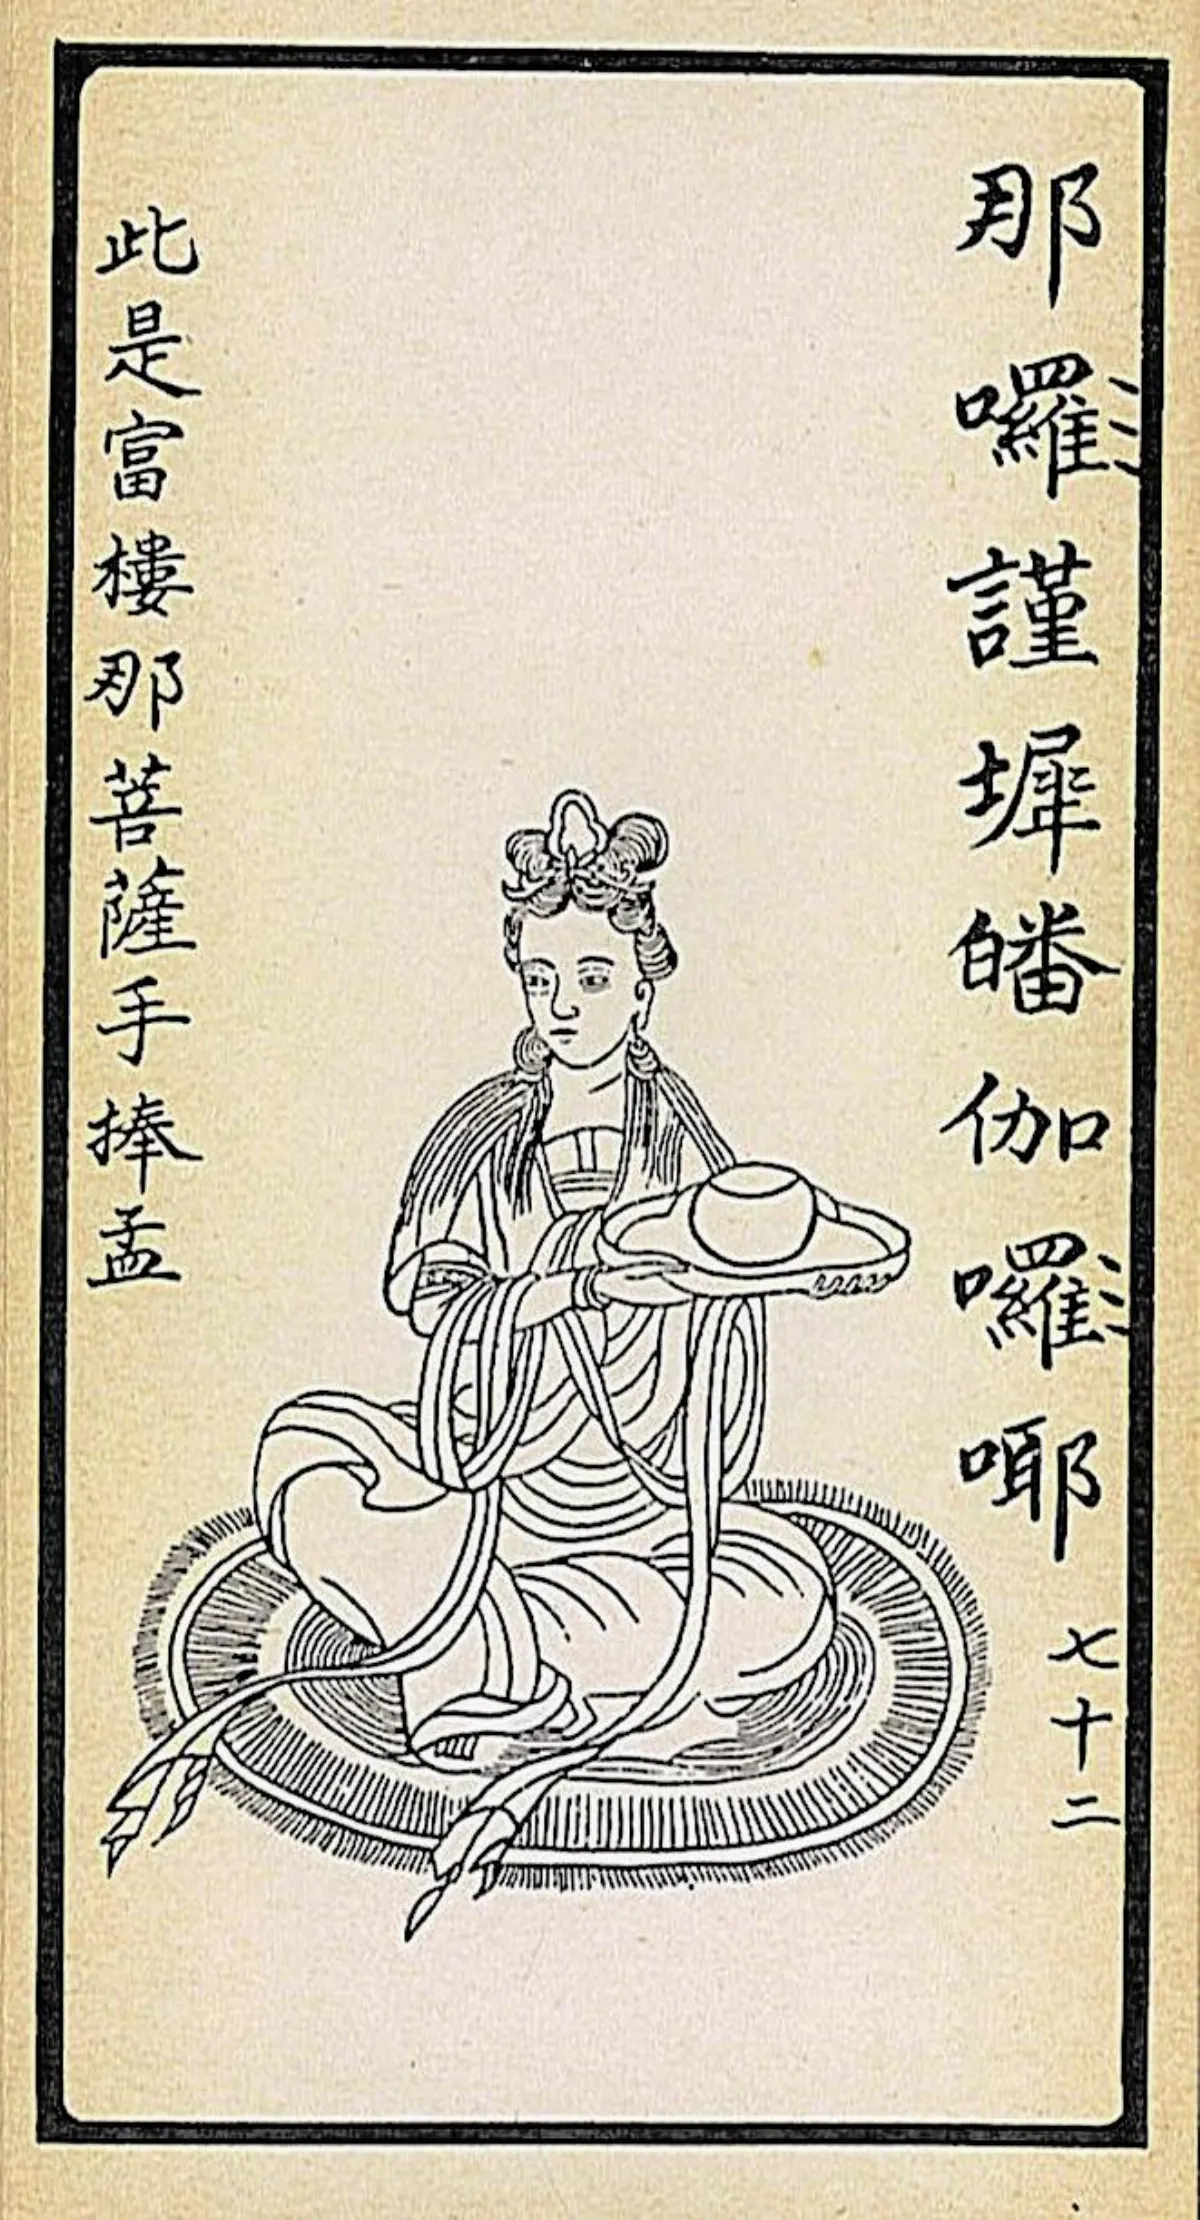 那囉謹墀皤伽囉哪 七十二
此是富樓那菩薩手捧孟